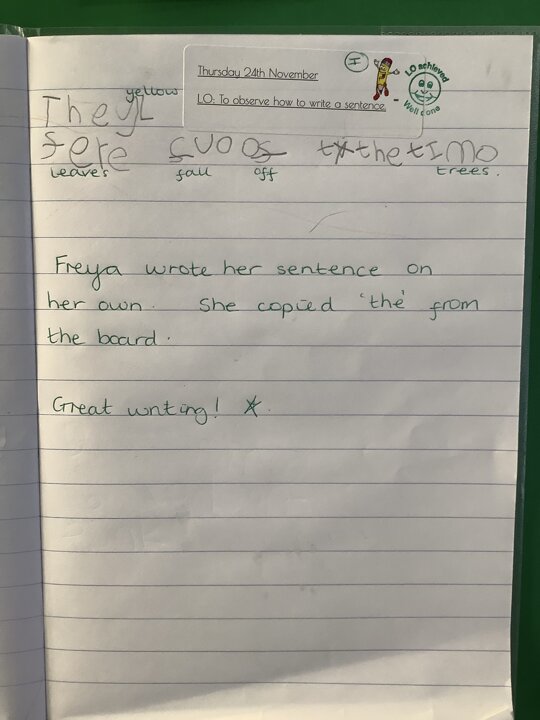 Thursday 24th November
LO: To observe how to write a sentence.
I
LO achieved
Well done
yellow
The yL
fere cvoos the timo
leaves fall off trees.
Freya wrote her sentence on
her own. She copied 'the' from
the board.
Great writing!